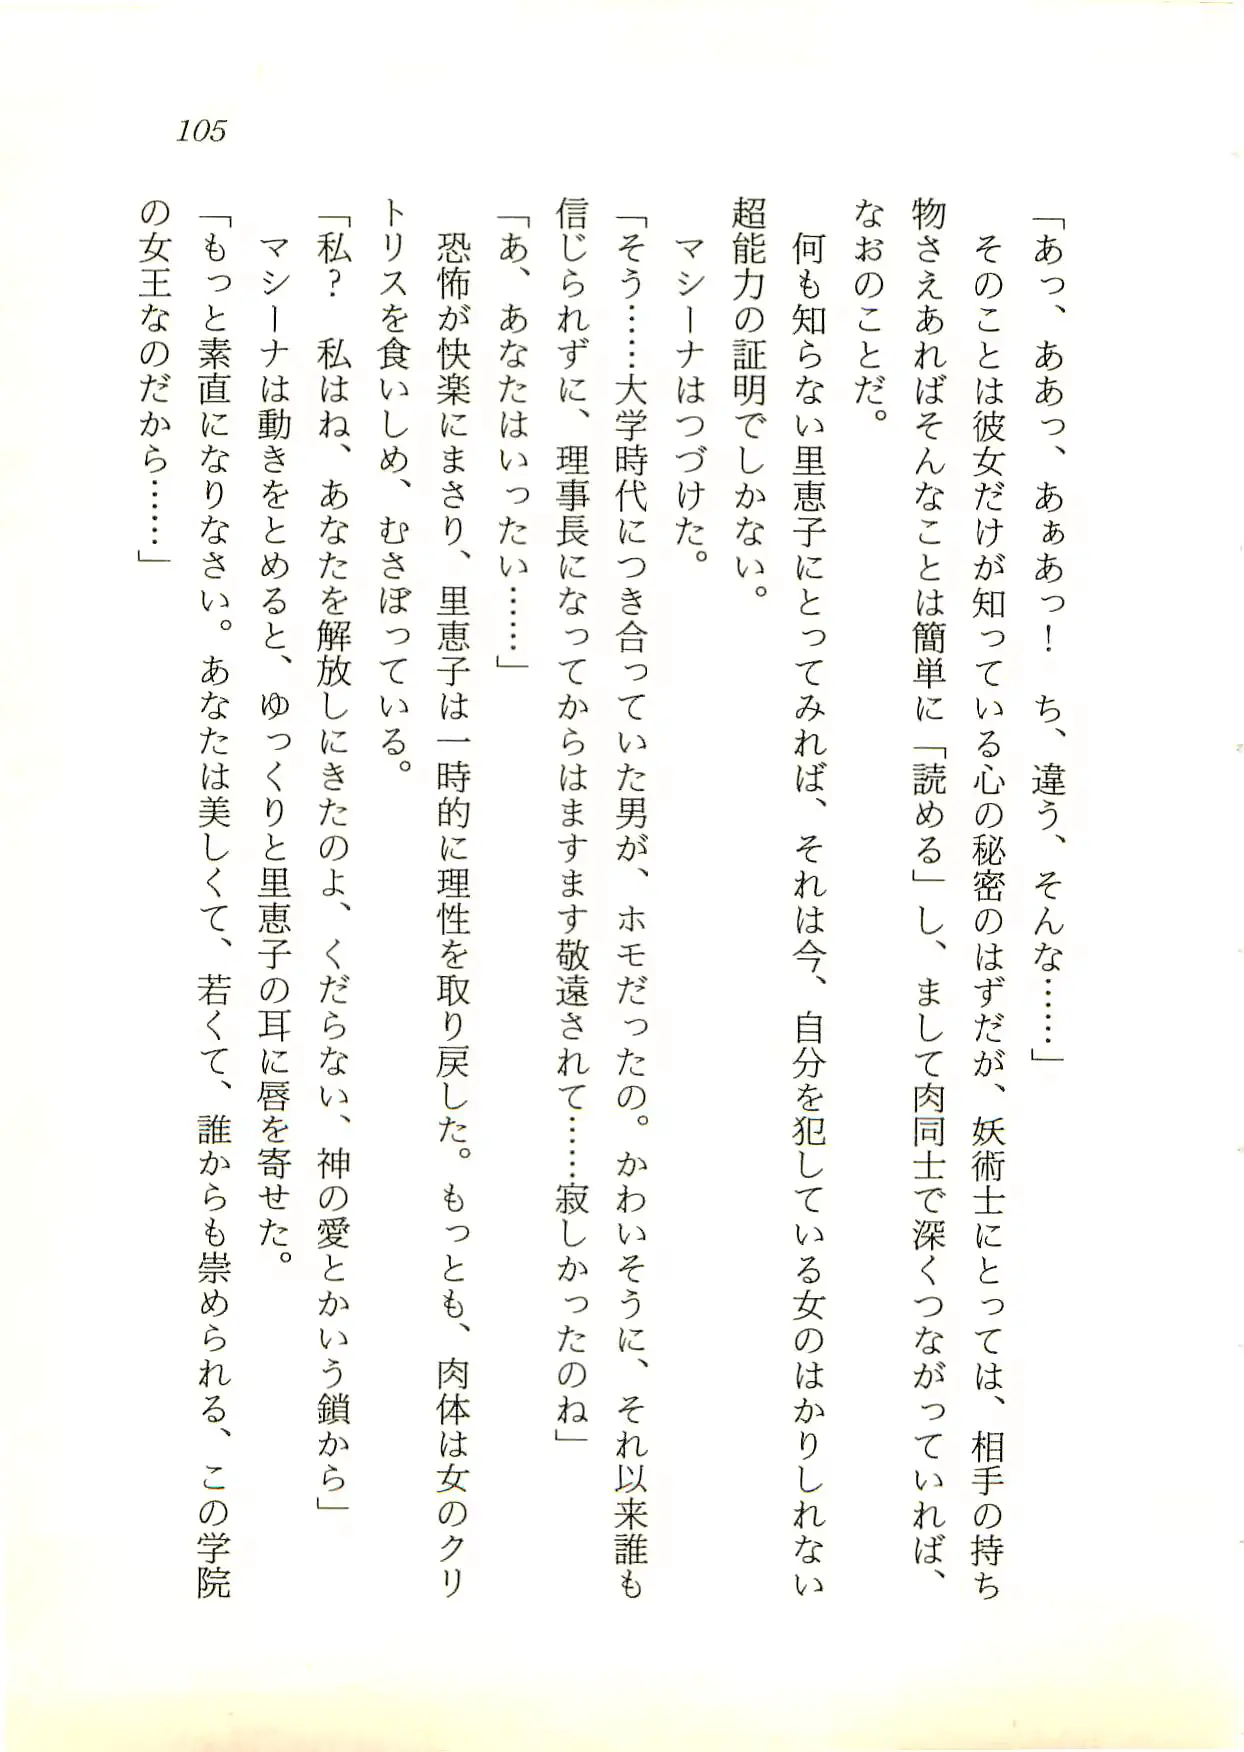 105
「あっ、ああっ、あぁあっ！　ち、違う、そんな……」
　そのことは彼女だけが知っている心の秘密のはずだが、妖術士にとっては、相手の持ち
物さえあればそんなことは簡単に「読める」し、まして肉同士で深くつながっていれば、
なおのことだ。
　何も知らない里恵子にとってみれば、それは今、自分を犯している女のはかりしれない
超能力の証明でしかない。
　マシーナはつづけた。
「そう……大学時代につき合っていた男が、ホモだったの。かわいそうに、それ以来誰も
信じられずに、理事長になってからはますます敬遠されて……寂しかったのね」
「あ、あなたはいったい……」
　恐怖が快楽にまさり、里恵子は一時的に理性を取り戻した。もっとも、肉体は女のクリ
トリスを食いしめ、むさぼっている。
「私？　私はね、あなたを解放しにきたのよ、くだらない、神の愛とかいう鎖から」
　マシーナは動きをとめると、ゆっくりと里恵子の耳に唇を寄せた。
「もっと素直になりなさい。あなたは美しくて、若くて、誰からも崇められる、この学院
の女王なのだから……」